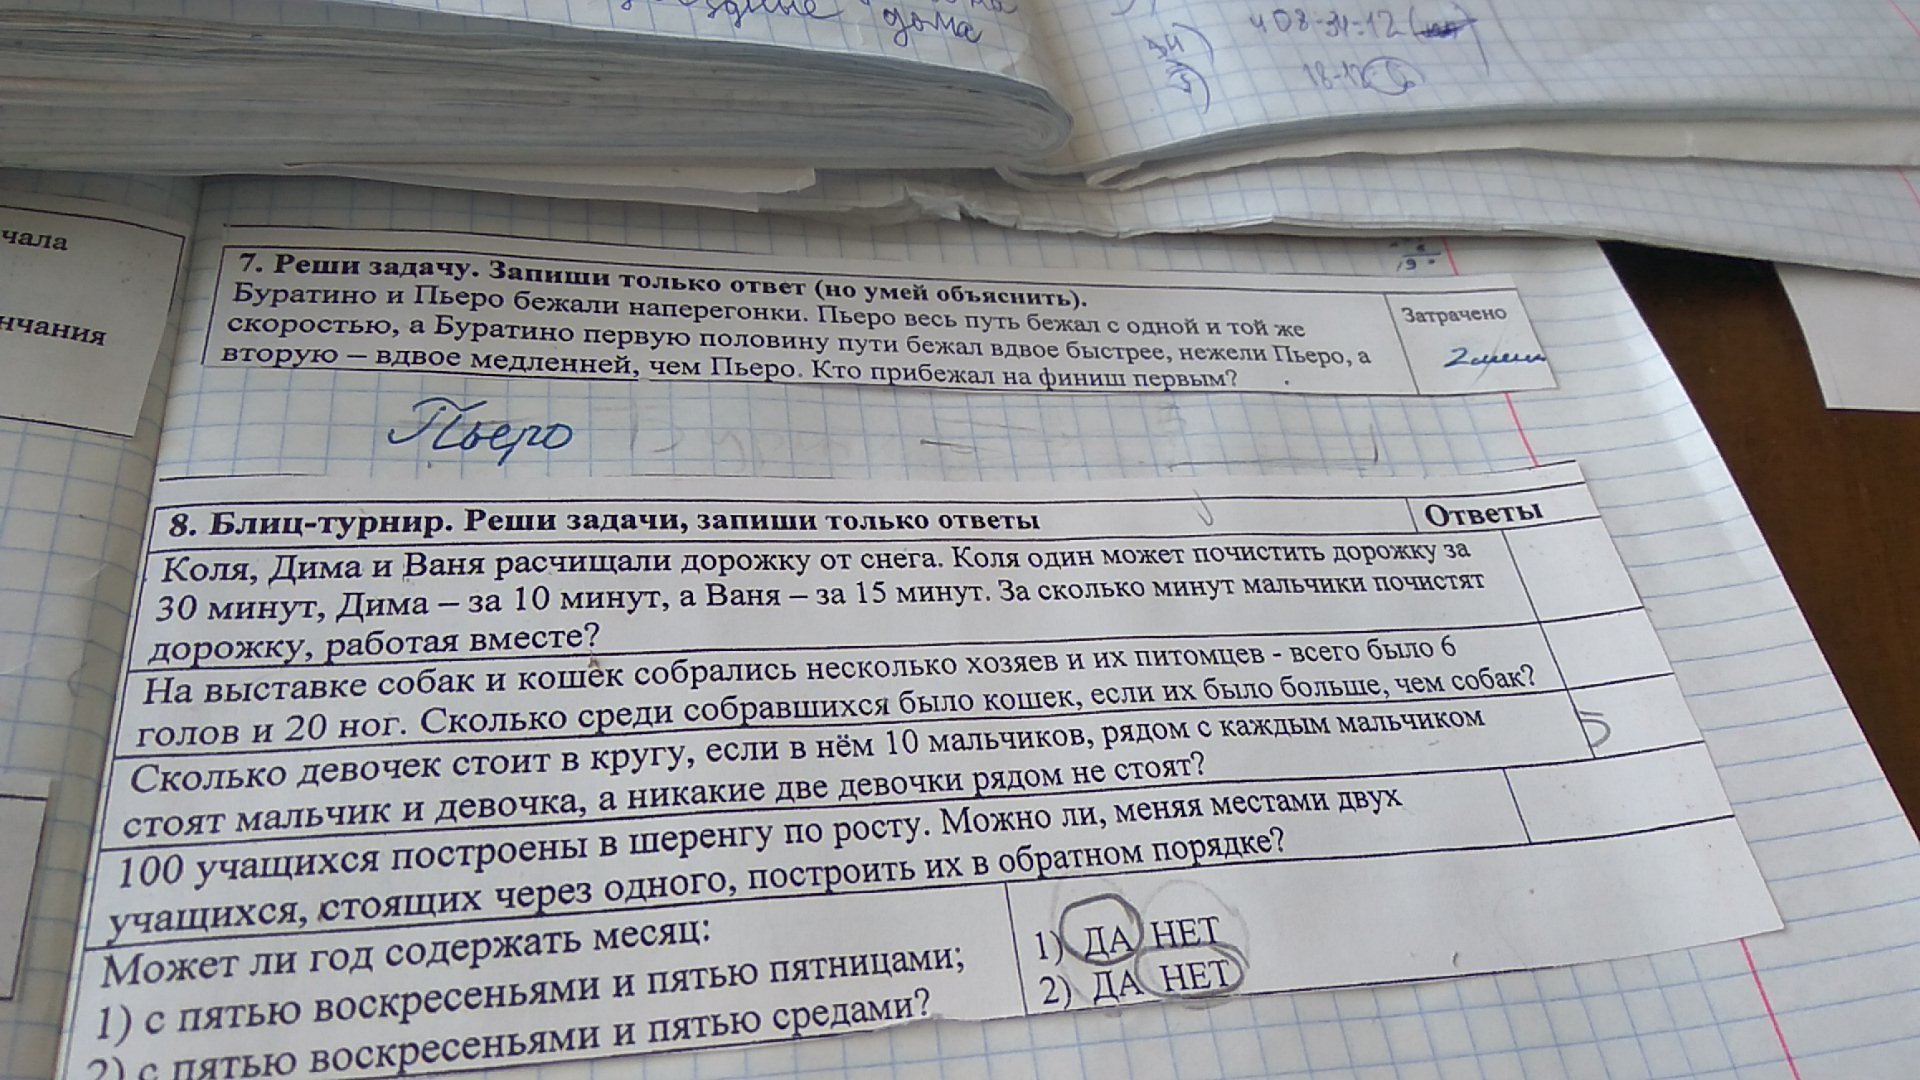 дома
408-31=12
чала
нчания
7. Реши задачу. Запиши только ответ (но умей объяснить).
Буратино и Пьеро бежали наперегонки. Пьеро весь путь бежал с одной и той же
скоростью, а Буратино первую половину пути бежал вдвое быстрее, нежели Пьеро, а
вторую – вдвое медленней, чем Пьеро. Кто прибежал на финиш первым?
Затрачено
2 мин
Пьеро
8. Блиц-турнир. Реши задачи, запиши только ответы
Ответы
Коля, Дима и Ваня расчищали дорожку от снега. Коля один может почистить дорожку за
30 минут, Дима – за 10 минут, а Ваня – за 15 минут. За сколько минут мальчики почистят
дорожку, работая вместе?
На выставке собак и кошек собрались несколько хозяев и их питомцев - всего было 6
голов и 20 ног. Сколько среди собравшихся было кошек, если их было больше, чем собак?
Сколько девочек стоит в кругу, если в нём 10 мальчиков, рядом с каждым мальчиком
стоят мальчик и девочка, а никакие две девочки рядом не стоят?
5
100 учащихся построены в шеренгу по росту. Можно ли, меняя местами двух
учащихся, стоящих через одного, построить их в обратном порядке?
Может ли год содержать месяц:
1) с пятью воскресеньями и пятью пятницами;
2) с пятью воскресеньями и пятью средами?
1) ДА НЕТ
2) ДА НЕТ